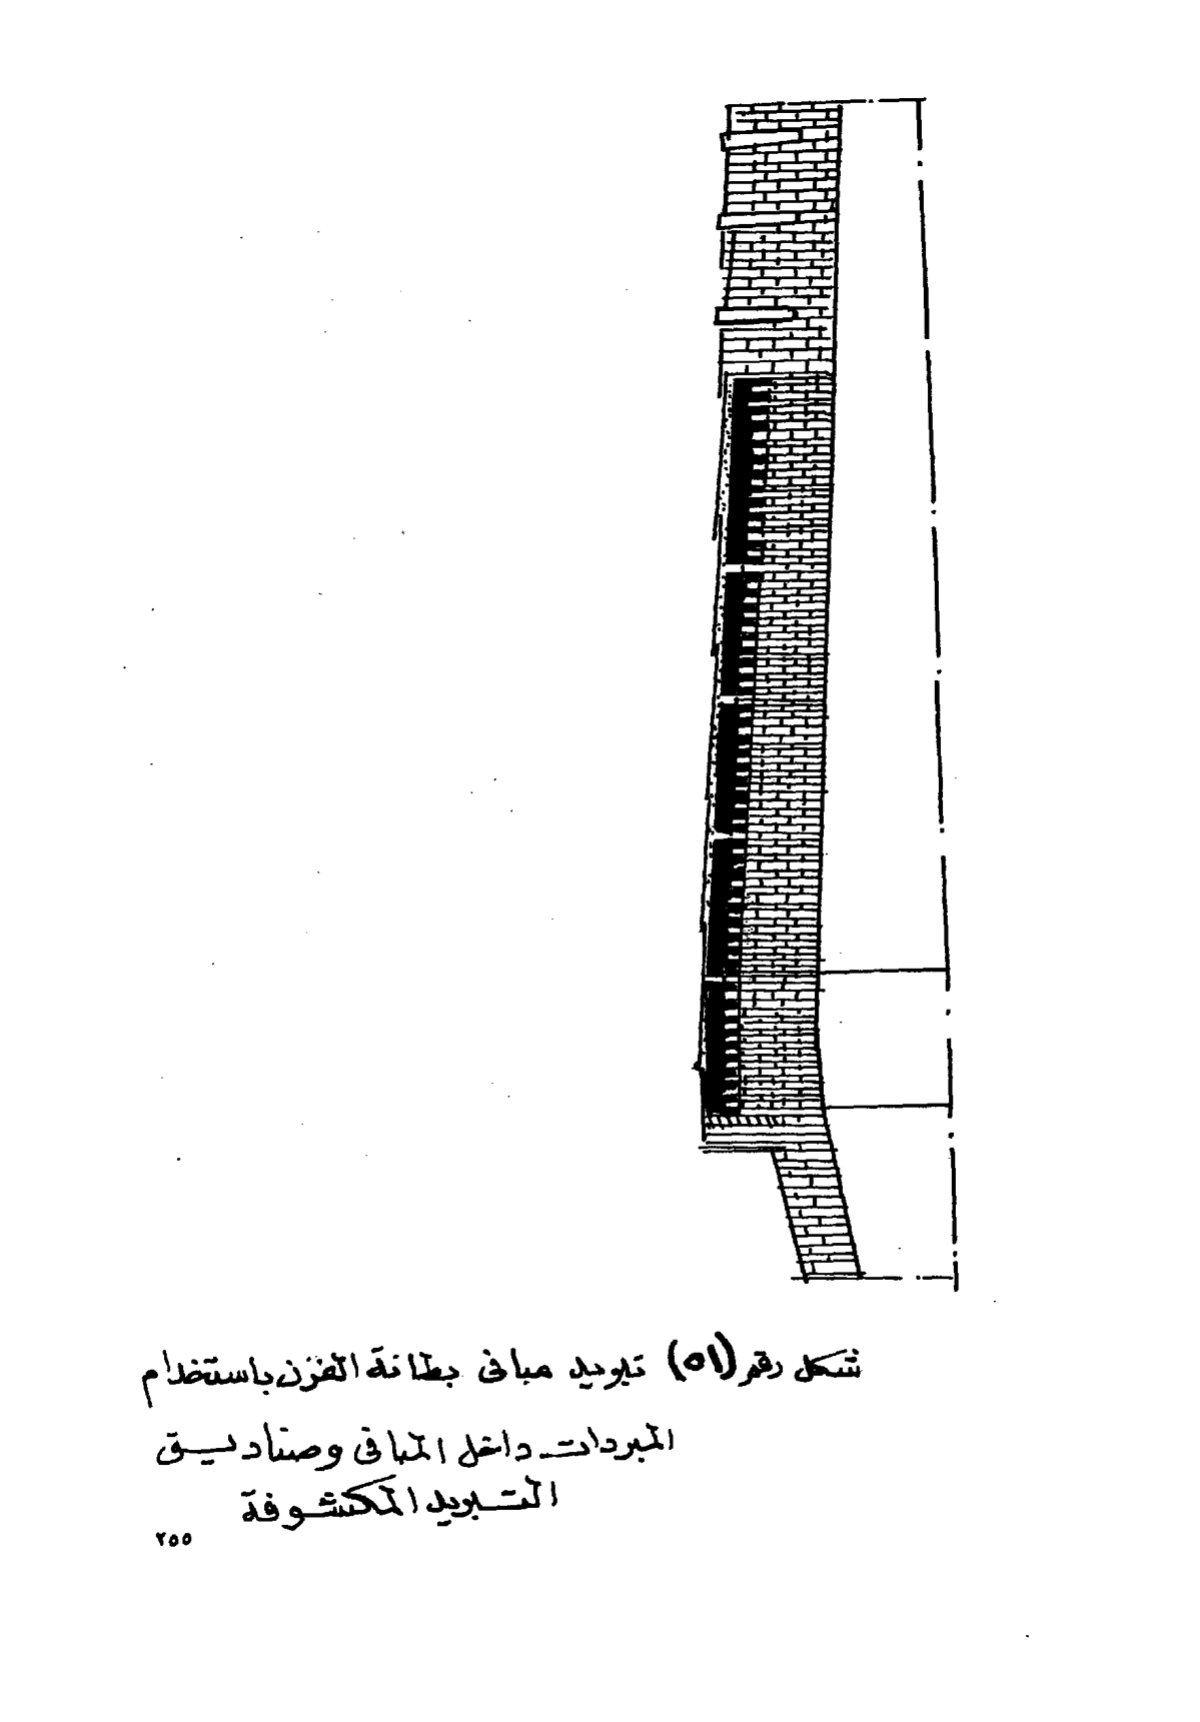 شكل رقم (٥١) تبريد مبانى بطانة الفرن باستخدام
المبردات داخل المبانى وصناديق
التبريد المكشوفة
٢٥٥